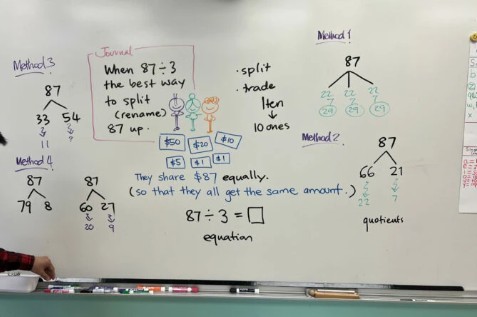 Method 3
87
33 54
11
Method 4
87
79 8
87
60 27
20 9
Journal
When 87 ÷ 3
the best way
to split
(rename)
87 up.
$50 $20 $10
$5 $1 $1
They share $87 equally.
(so that they all get the same amount.)
87 ÷ 3 = □
equation
· split
· trade
1 ten
↓
10 ones
Method 1
87
22 22 22
7 7 7
29 29 29
Method 2
87
66 21
22 7
quotients